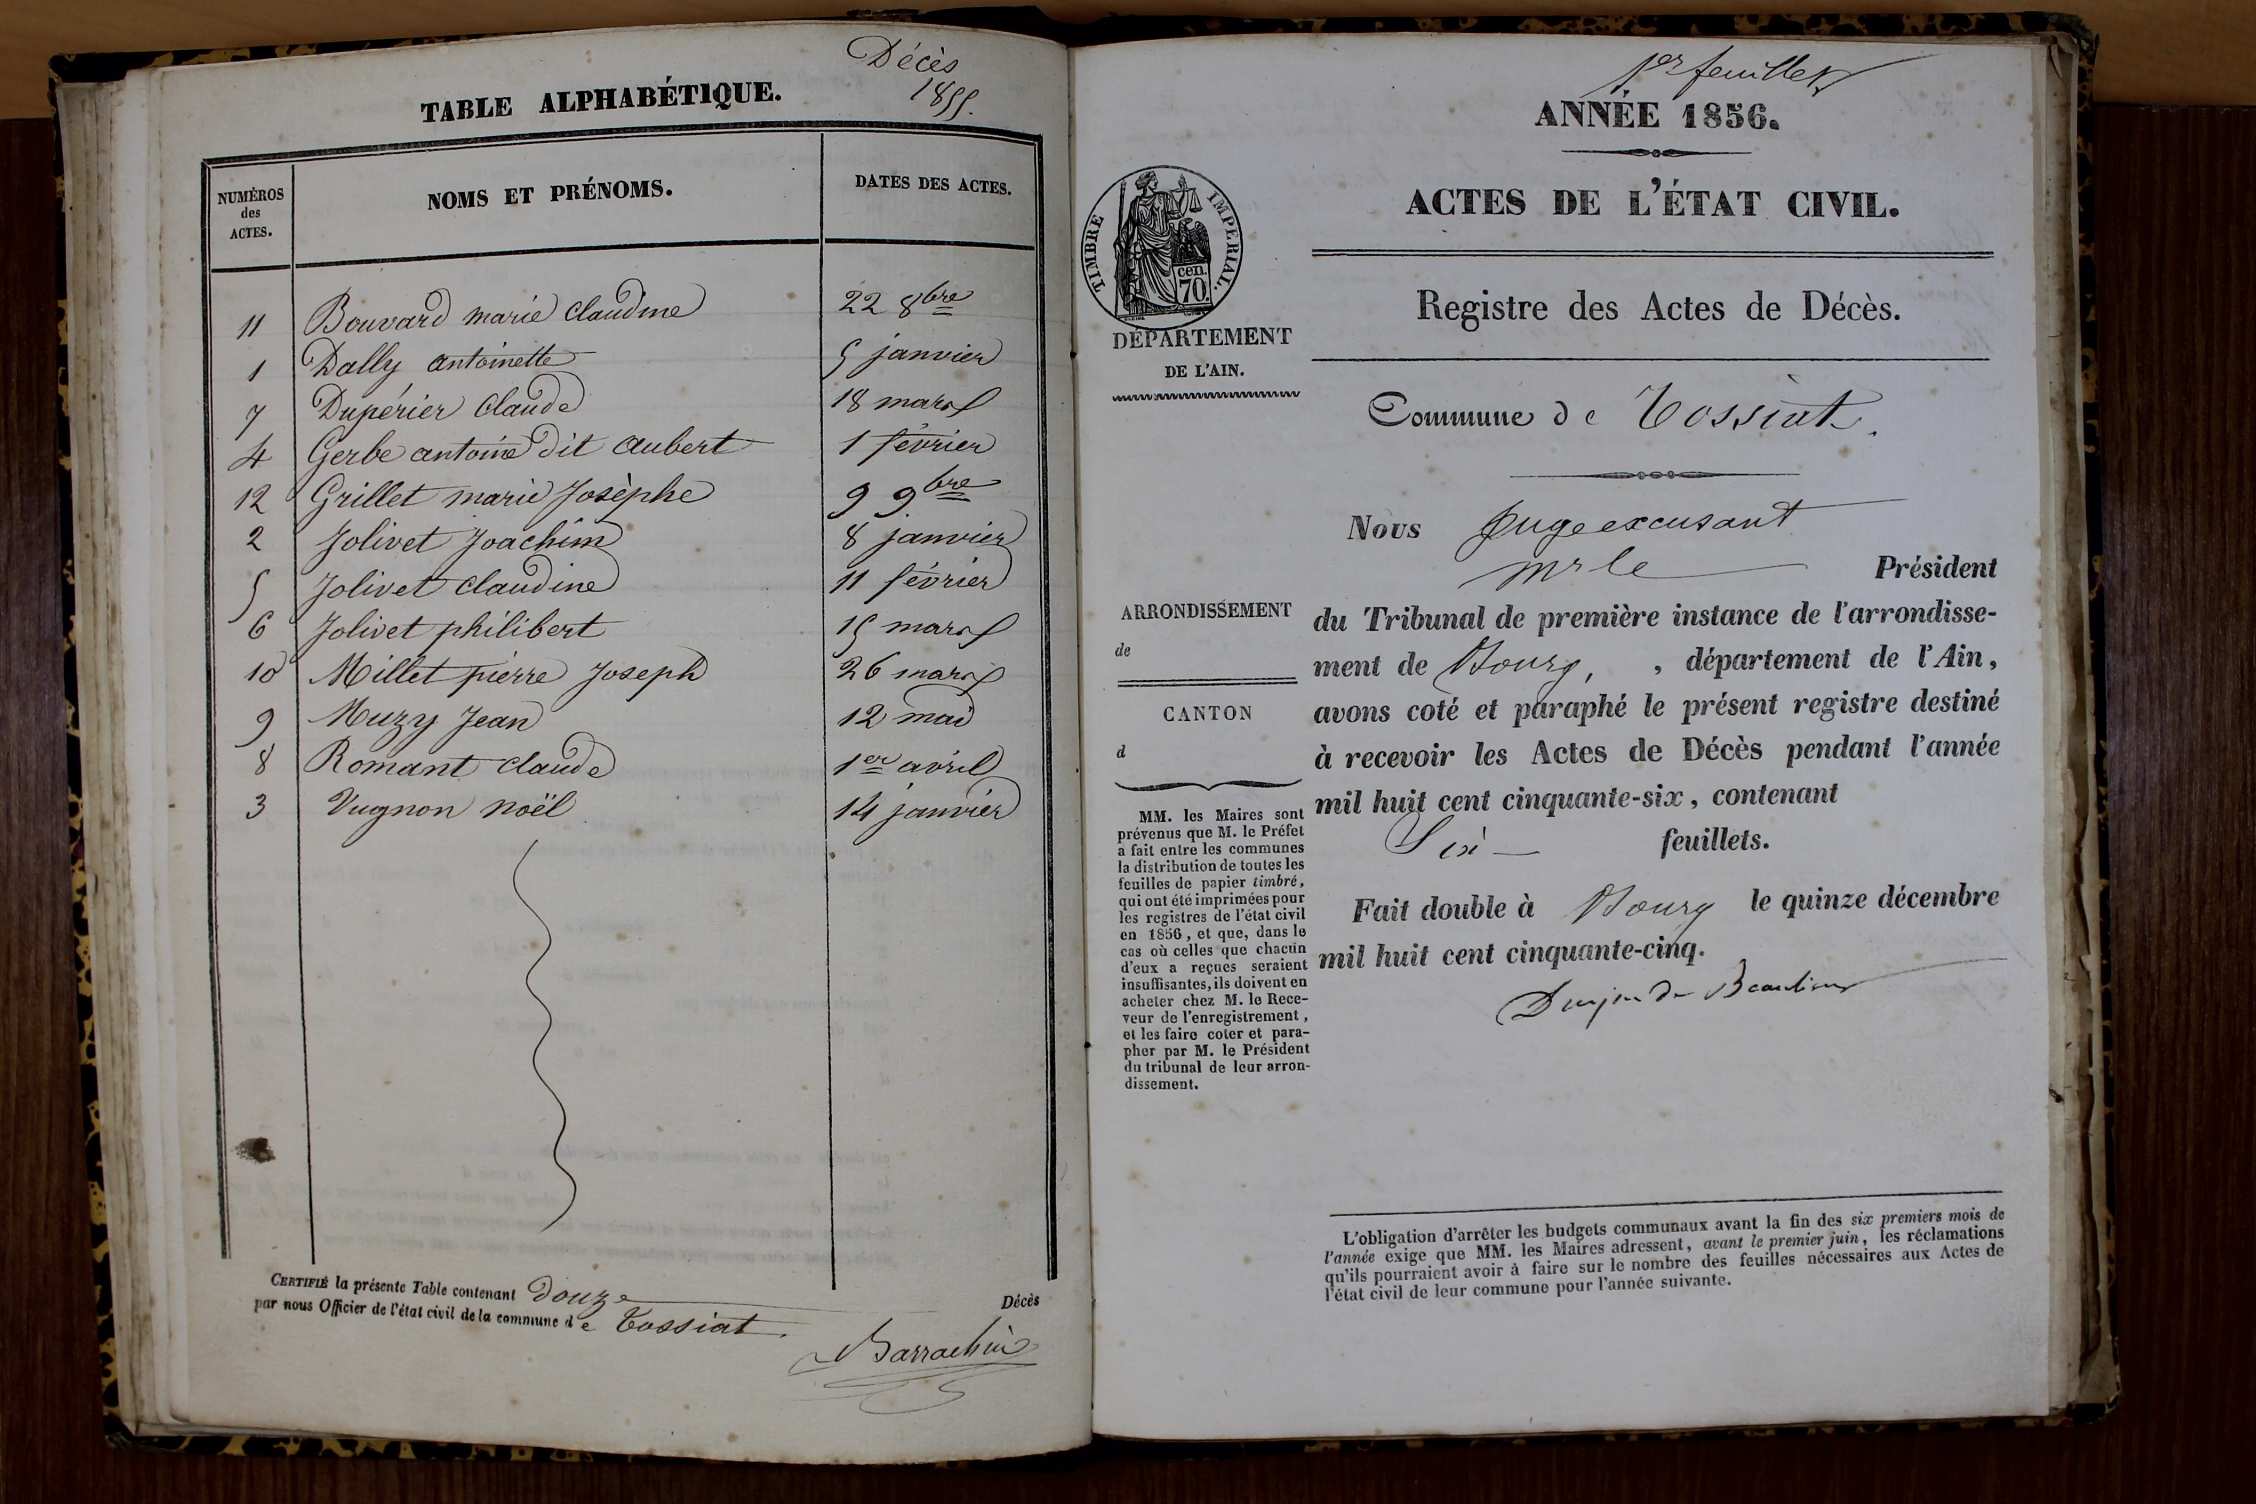 Décès
1855.
TABLE ALPHABÉTIQUE.
NUMÉROS
des
ACTES.
NOMS ET PRÉNOMS.
DATES DES ACTES.
11 Bouvard marie claudine 22 8bre
1 Dally antoinette 5 janvier
7 Dupérier claude 18 mars
4 Gerbe antoine dit aubert 1 février
12 Grillet marie Josèphe 9 9bre
2 Jolivet Joachim 8 janvier
5 Jolivet claudine 11 février
6 Jolivet philibert 15 mars
10 Millet pierre Joseph 26 mars
9 Muzy Jean 12 mai
8 Romant claude 1er avril
3 Vugnon noël 14 janvier
CERTIFIÉ la présente Table contenant douze Décès
par nous Officier de l'état civil de la commune de Tossiat.
Barrachin
1er feuillet
ANNÉE 1856.
ACTES DE L'ÉTAT CIVIL.
TIMBRE IMPERIAL.
cen.
70.
DÉPARTEMENT
DE L'AIN.
Registre des Actes de Décès.
Commune de Tossiat.
Nous Juge excusant
mr le Président
du Tribunal de première instance de l'arrondisse-
ment de Bourg, , département de l'Ain,
avons coté et paraphé le présent registre destiné
à recevoir les Actes de Décès pendant l'année
mil huit cent cinquante-six, contenant
Six feuillets.
Fait double à Bourg le quinze décembre
mil huit cent cinquante-cinq.
de Beaulieu
ARRONDISSEMENT
de
CANTON
d
MM. les Maires sont
prévenus que M. le Préfet
a fait entre les communes
la distribution de toutes les
feuilles de papier timbré,
qui ont été imprimées pour
les registres de l'état civil
en 1856, et que, dans le
cas où celles que chacun
d'eux a reçues seraient
insuffisantes, ils doivent en
acheter chez M. le Rece-
veur de l'enregistrement,
et les faire coter et para-
pher par M. le Président
du tribunal de leur arron-
dissement.
L'obligation d'arrêter les budgets communaux avant la fin des six premiers mois de
l'année exige que MM. les Maires adressent, avant le premier juin, les réclamations
qu'ils pourraient avoir à faire sur le nombre des feuilles nécessaires aux Actes de
l'état civil de leur commune pour l'année suivante.